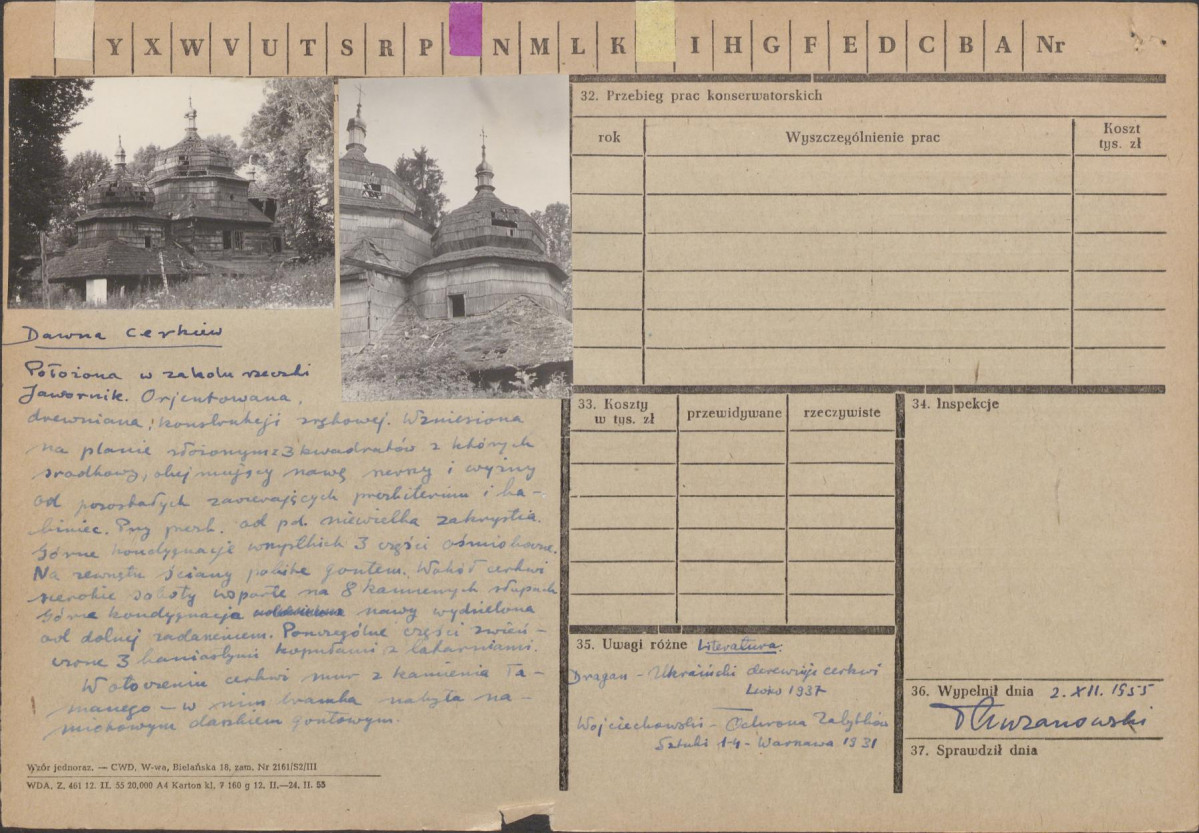 Y X W V U T S R P N M L K I H G F E D C B A Nr
Dawna cerkiew
Położona w zakolu rzeczki
Jawornik. Orjentowana,
drewniana, konstrukcji zrębowej. Wzniesiona
na planie złożonym z 3 kwadratów z których
środkowy, obejmujący nawę szerszy i wyższy
od pozostałych zawierających prezbiterium i ba-
biniec. Przy prezb. od pd. niewielka zakrystia.
Górne kondygnacje wszystkich 3 części ośmioboczne.
Na zewnątrz ściany pobite gontem. Wokół cerkwi
szerokie soboty wsparte na 8 kamiennych słupach
Górna kondygnacja nawy wydzielona
od dolnej zadaszeniem. Poszczególne części zwień-
czone 3 baniastymi kopułami z latarniami.
W otoczeniu cerkwi mur z kamienia ła-
manego - w nim bramka nakryta na-
miotowym daszkiem gontowym.
Wzór jednoraz. — CWD, W-wa, Bielańska 18, zam. Nr 2161/S2/III
WDA, Z. 461 12. II. 55 20,000 A4 Karton kl. 7 160 g 12. II.—24. II. 55
32. Przebieg prac konserwatorskich
rok Wyszczególnienie prac Koszt
tys. zł
33. Koszty
w tys. zł przewidywane rzeczywiste
34. Inspekcje
35. Uwagi różne Literatura.
Dragan - Ukraiński derewjani cerkwi
Lwów 1937
Wojciechowski - Ochrona Zabytków
Sztuki 1-4 - Warszawa 1931
36. Wypełnił dnia 2. XII. 1955
37. Sprawdził dnia